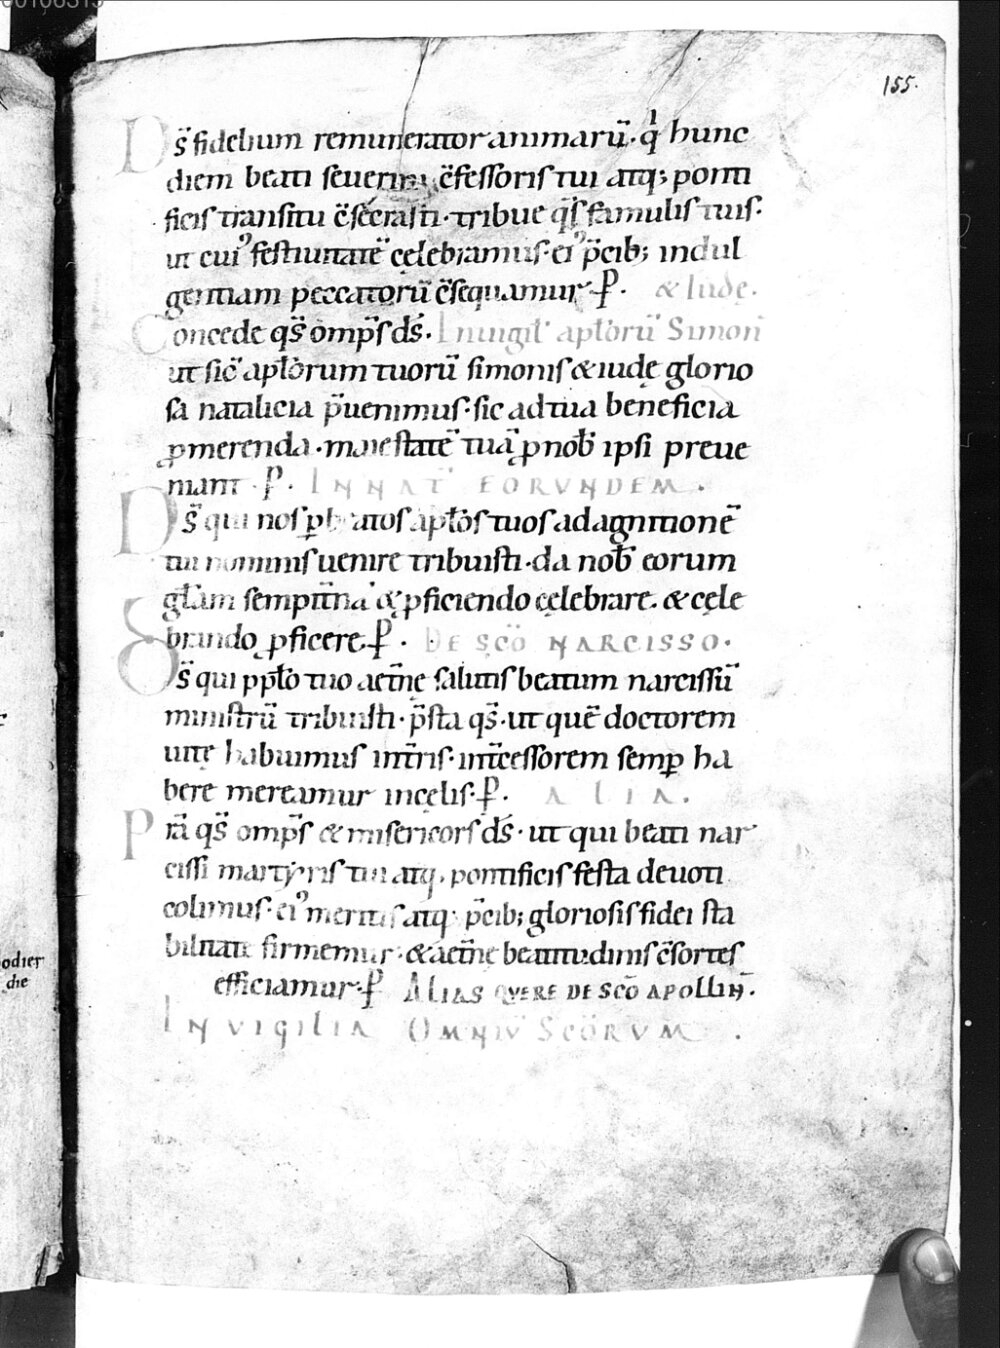 155.
Ds̄ fidelium remunerator animarū· q̍ hunc
diem beati seuerini c̄fessoris tui atq; ponti
ficis transitu c̄secrasti· tribue qs̄ famulis tuis·
ut cuiꝰ festiuitatē cęlebramus· eiꝰ p̄cib; indul
gentiam peccatorū c̄sequamur· P̄. & Iudę.
Concede qs̄ omp̄s ds̄. In uigil̄ apl̄orū Simon̄
ut sic̄ apl̄orum tuorū simonis & iudę glorio
sa natalicia p̄uenimus· sic ad tua beneficia
ꝓmerenda· maiestatē tuā ꝓ nob̄ ipsi preue
niant· P̄. IN NAT̄ EORVNDEM.
Ds̄ qui nos ꝑ beatos apl̄os tuos ad agnitionē
tui nominis uenire tribuisti· da nob̄ eorum
gl̄am sempit̄na & ꝓficiendo cęlebrare. & cęle
brando ꝓficere. P̄. DE SC̄O NARCISSO.
Ds̄ qui ppl̄o tuo aet̄ne salutis beatum narcissū
ministrū tribuisti· p̄sta qs̄· ut quē doctorem
uitę habuimus in t̄ris· int̄cessorem semꝑ ha
bere mereamur in cęlis· P̄. ALIA.
Prā qs̄ omp̄s & misericors ds̄· ut qui beati nar
cissi martyris tui atq. pontificis festa deuoti
colimus· eiꝰ meritis atq· p̄cib; gloriosis fidei sta
bilitate firmemur· & aet̄ne beatitudinis c̄sortes
efficiamur· P̄ ALIAS QVERE DE SC̄O APOLLIN̄.
IN VIGILIA OMNIV̄ SC̄ORVM.
odier
die